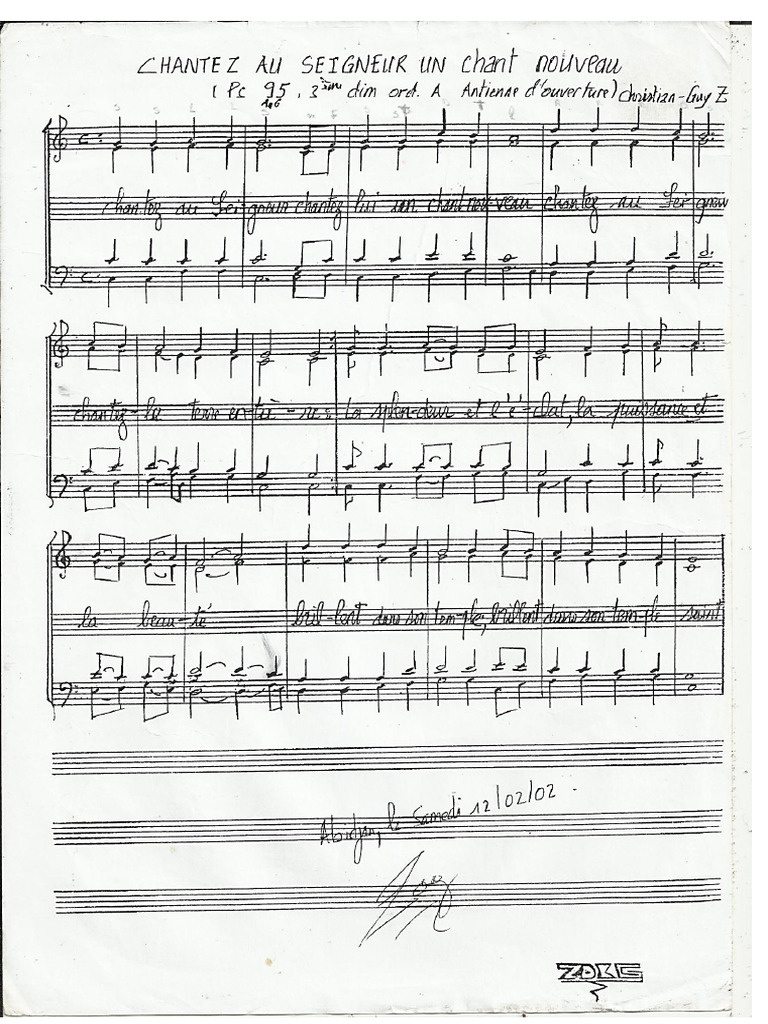 CHANTEZ AU SEIGNEUR UN chant nouveau
( Ps 95, 3ème dim ord. A Antienne d'ouverture) Christian-Guy Z
chantez au Sei-gneur chantez lui un chant nou-veau chantez au Sei-gneur
chantez-la terre en-tiè-re: La splen-deur et l'é-clat, la puissance et
la beau-té bril-lent dans son tem-ple, brillent dans son tem-ple saint
Abidjan, le Samedi 12/02/02.